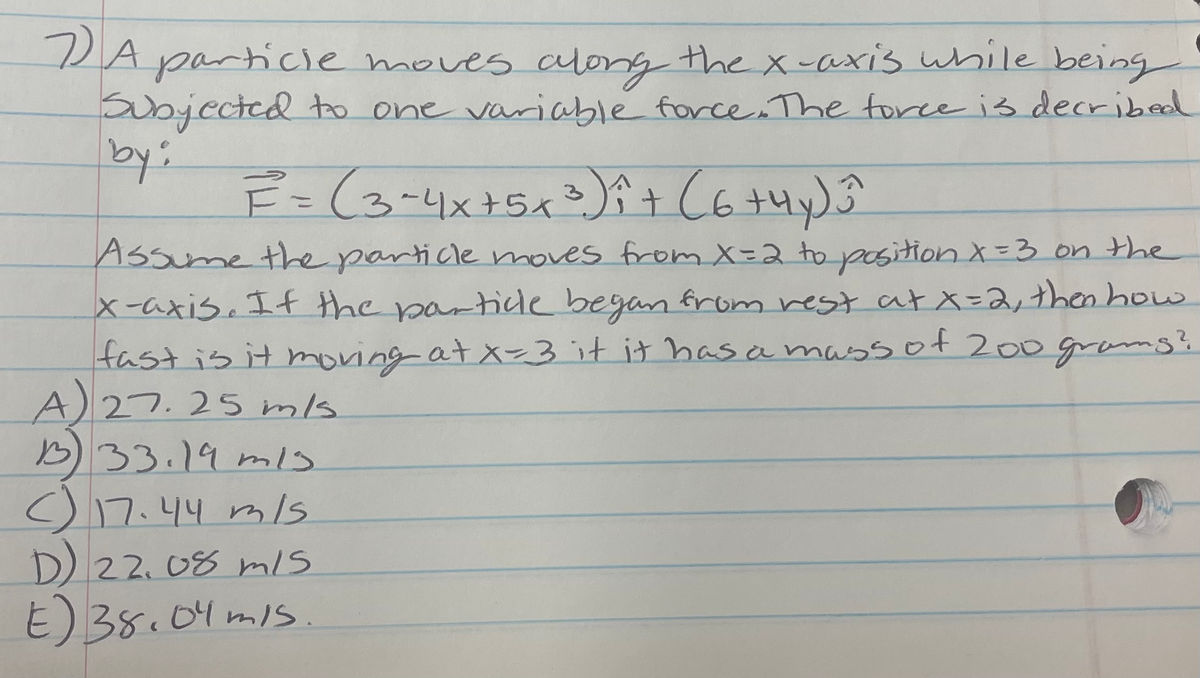 7) A particle moves along the x-axis while being
subjected to one variable force. The force is decribed
by:
F⃗ = (3-4x+5x³)î + (6+4y)ĵ
Assume the particle moves from x=2 to position x=3 on the
x-axis. If the particle began from rest at x=2, then how
fast is it moving at x=3 if it has a mass of 200 grams?
A) 27.25 m/s
B) 33.19 m/s
C) 17.44 m/s
D) 22.08 m/s
E) 38.04 m/s.